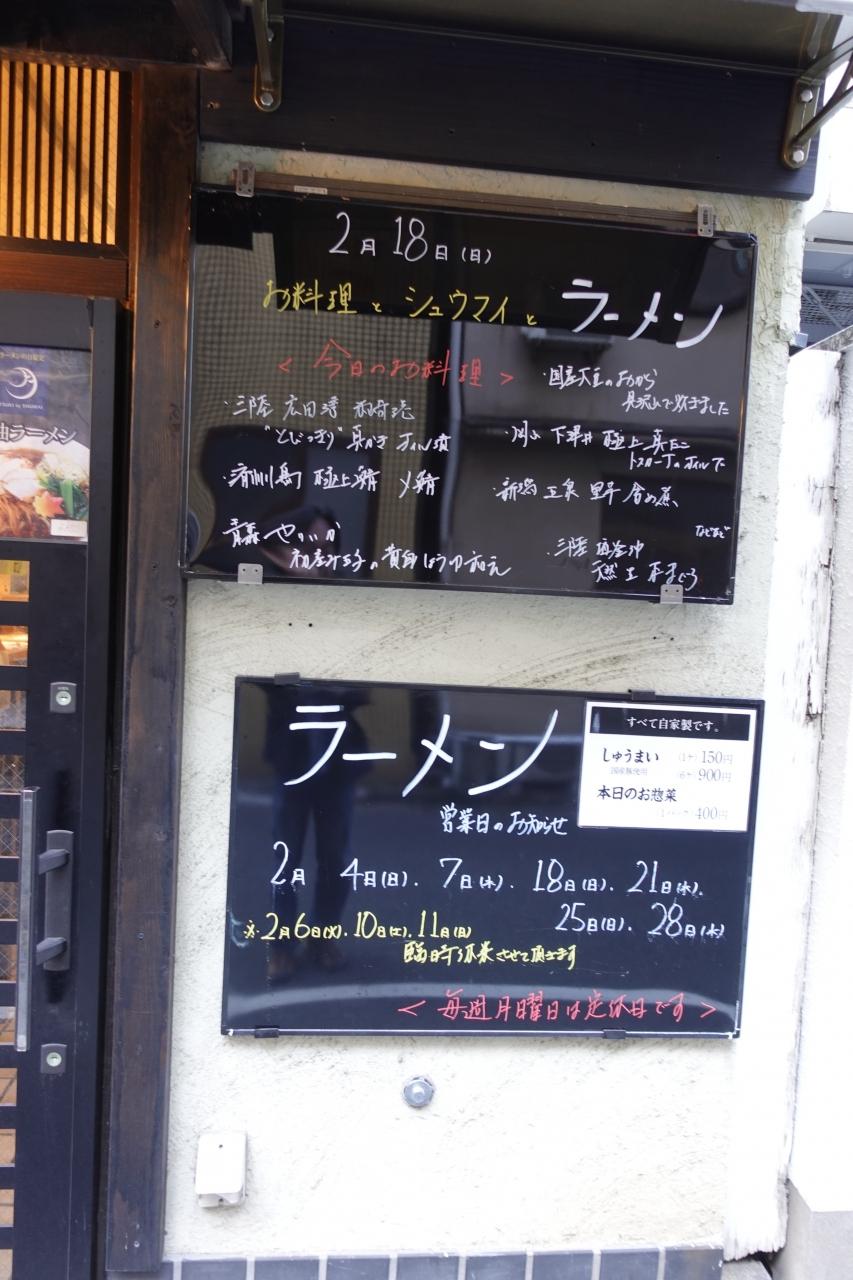 2月18日(日)
お料理とシュウマイとラーメン
<今日のお料理>
・三陸 広田湾
"とびっきり"真かきオイル漬
・済州島 極上鯖 〆鯖
青森 やりいか
・国産大豆のおから
具沢山で炊きました
・岡山 下津井 極上真だこ
・新潟 五泉 里芋 含め煮
などなど
・三陸
天然 生 本まぐろ
油ラーメン
ラーメン
営業日のお知らせ
2月 4日(日). 7日(水). 18日(日). 21日(水).
25日(日). 28日(水)
※2月6日(火). 10日(土). 11日(日)
臨時休業させて頂きます
<毎週月曜日は定休日です>
すべて自家製です。
しゅうまい (1ケ)150円
国産豚使用 (6ケ)900円
本日のお惣菜
(1パック)400円